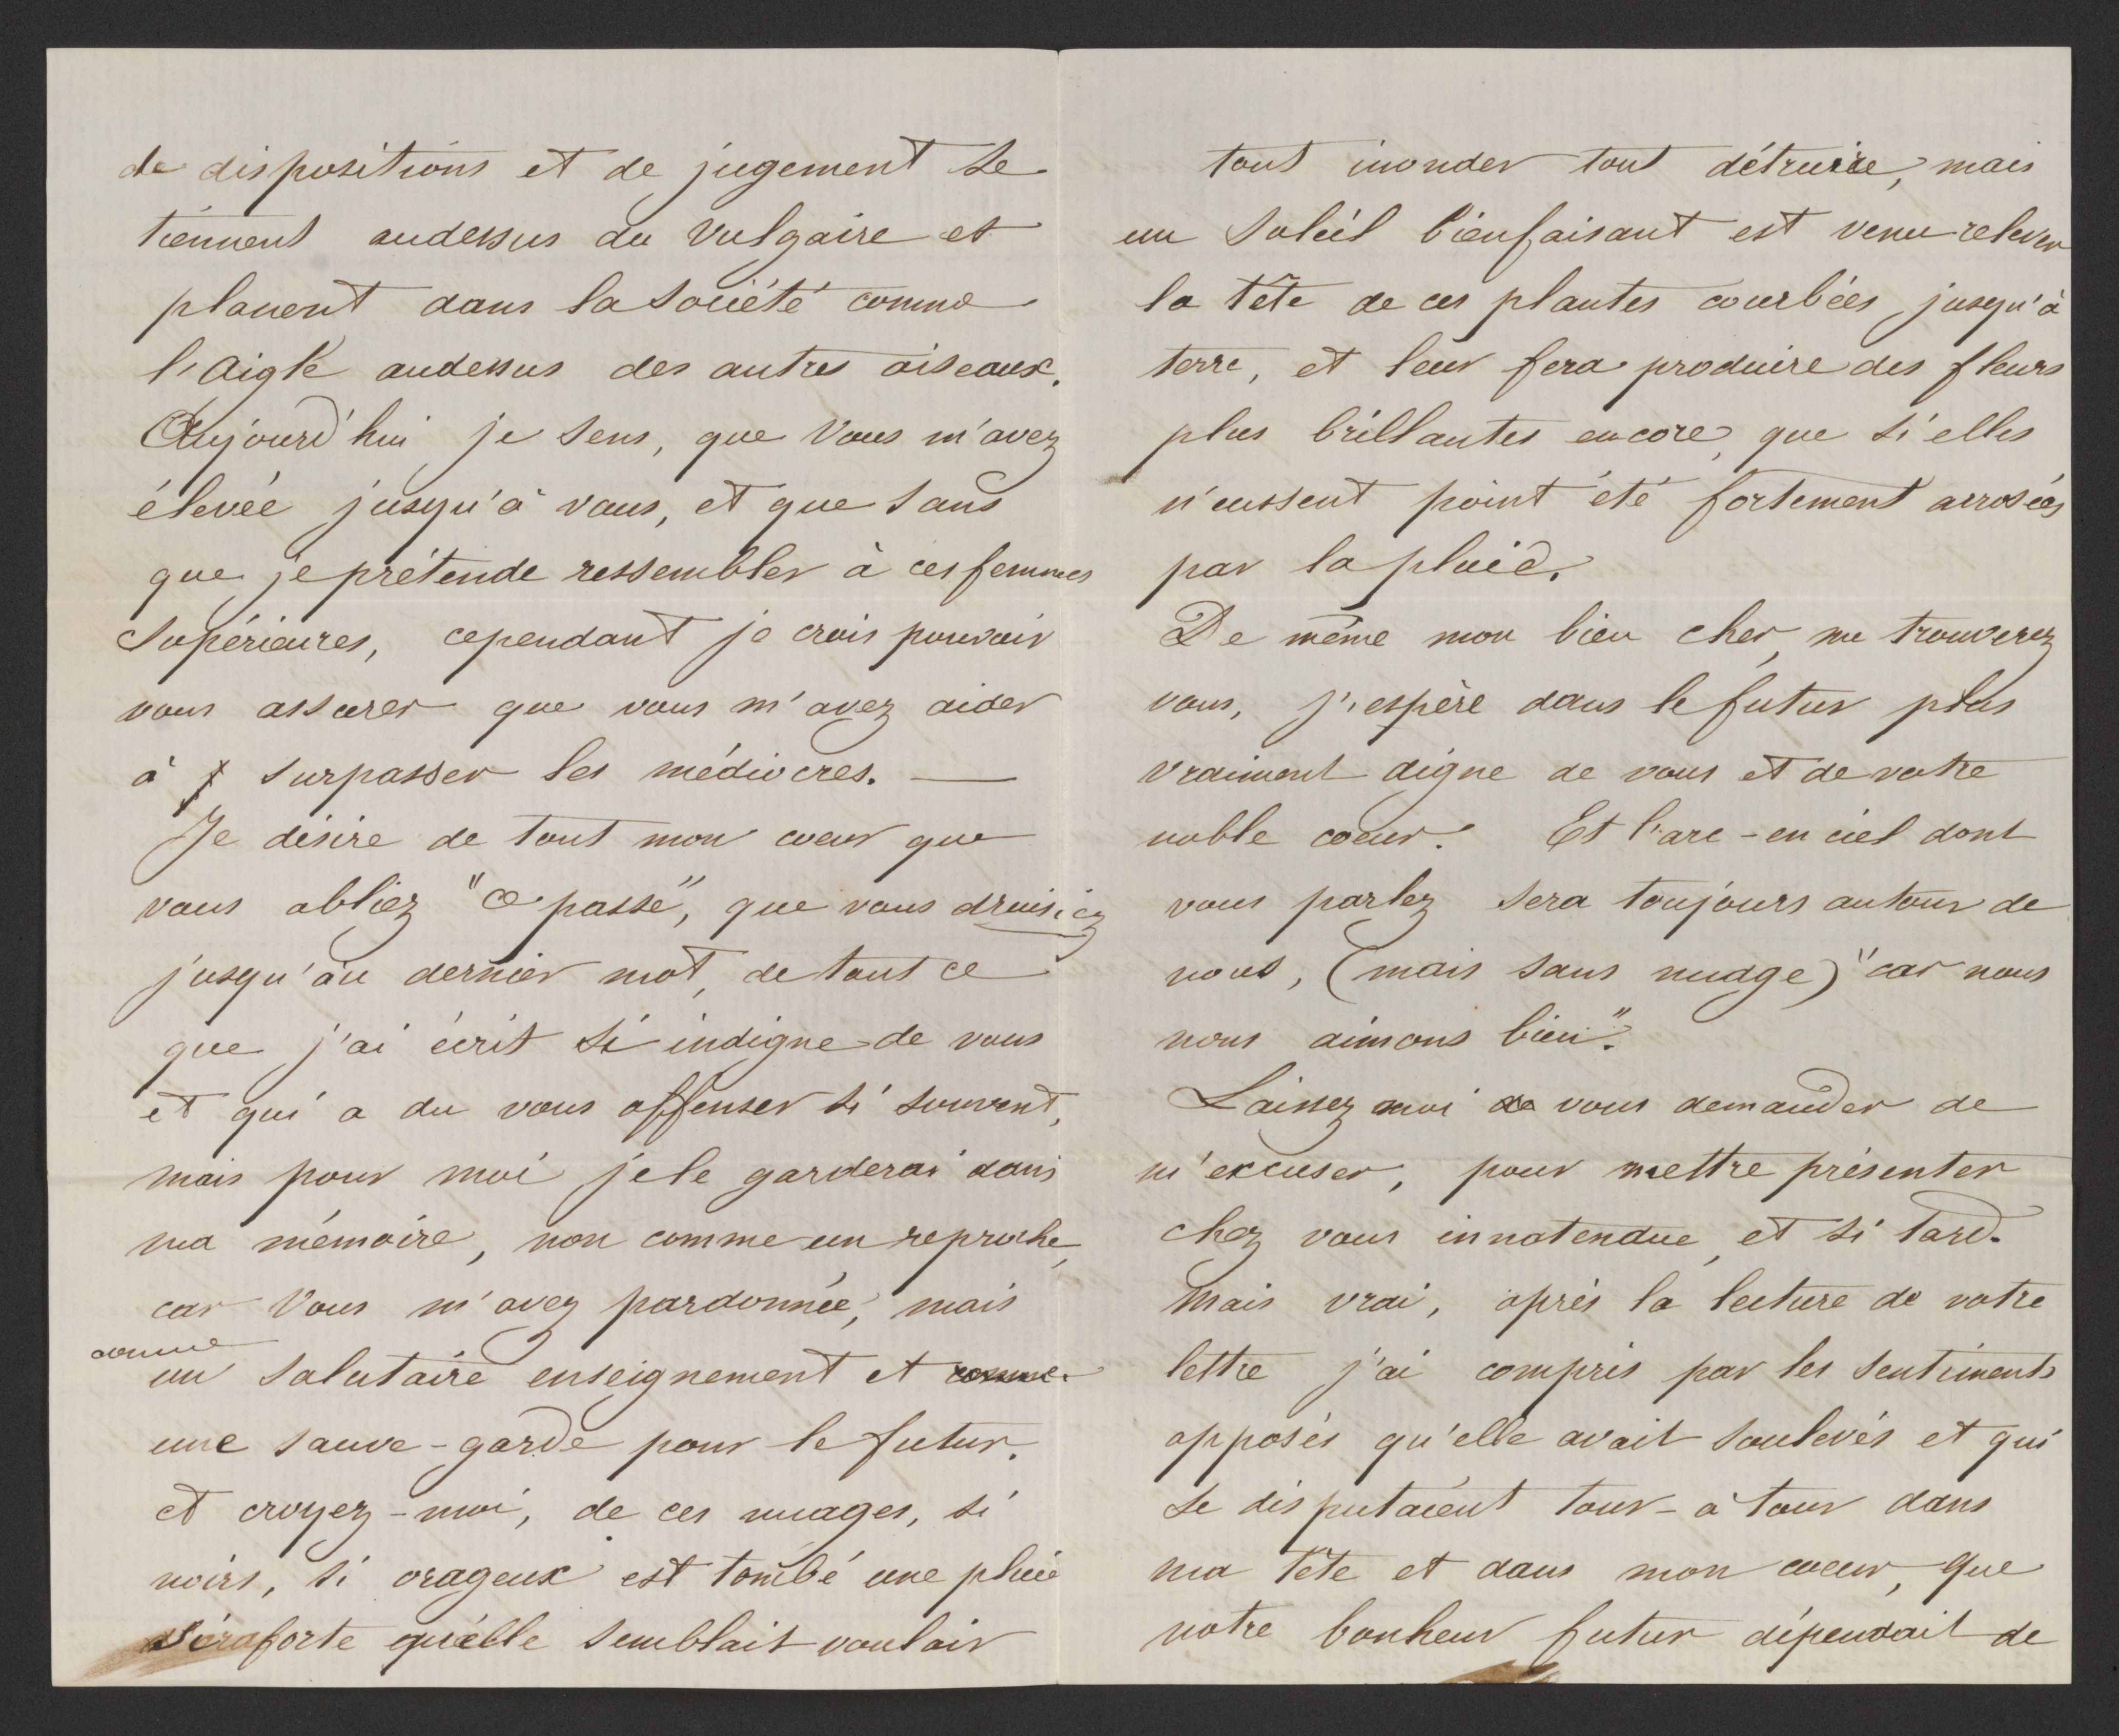 de dispositions et de jugement se
tiennent audessus du vulgaire et
planent dans la société comme
l'aigle audessus des autres oiseaux.
Aujourd'hui je sens, que vous m'avez
élevée jusqu'à vous, et que sans
que je prétende ressembler à ces femmes
supérieures, cependant je crois pouvoir
vous assurer que vous m'avez aider
à surpasser les médiocres. —
Je désire de tout mon cœur que
vous obliez "ce passé", que vous
jusqu'au dernier mot, de tout ce
que j'ai écrit si indigne de vous
et qui a du vous offenser si souvent,
mais pour moi je le garderai dans
ma mémoire, non comme un reproche,
car vous m'avez pardonnée, mais
comme
un salutaire enseignement et comme
une sauve-garde pour le futur.
et croyez-moi, de ces nuages, si
noirs, si orageux est tombé une pluie
forte qu'elle semblait vouloir
tout inonder tout détruire, mais
un soleil bienfaisant est venu relever
la tête de ces plantes courbées jusqu'à
terre, et leur fera produire des fleurs
plus brillantes encore, que si elles
n'eussent point été fortement arrosées
par la pluie.
De même mon bien cher, me trouverez
vous, j'espère dans le futur plus
vraiment digne de vous et de votre
noble coeur. Et l'arc-en ciel dont
vous parlez sera toujours autour de
nous, (mais sans nuage) "car nous
nous aimons bien".
Laissez moi vous demander de
m'excuser, pour mettre présenter
chez vous innatendue, et si tard.
Mais vrai, après la lecture de votre
lettre j'ai compris par les sentiments
opposés qu'elle avait soulevés et qui
se disputaient tour-à tour dans
ma tête et dans mon coeur, que
notre bonheur futur dépendait de